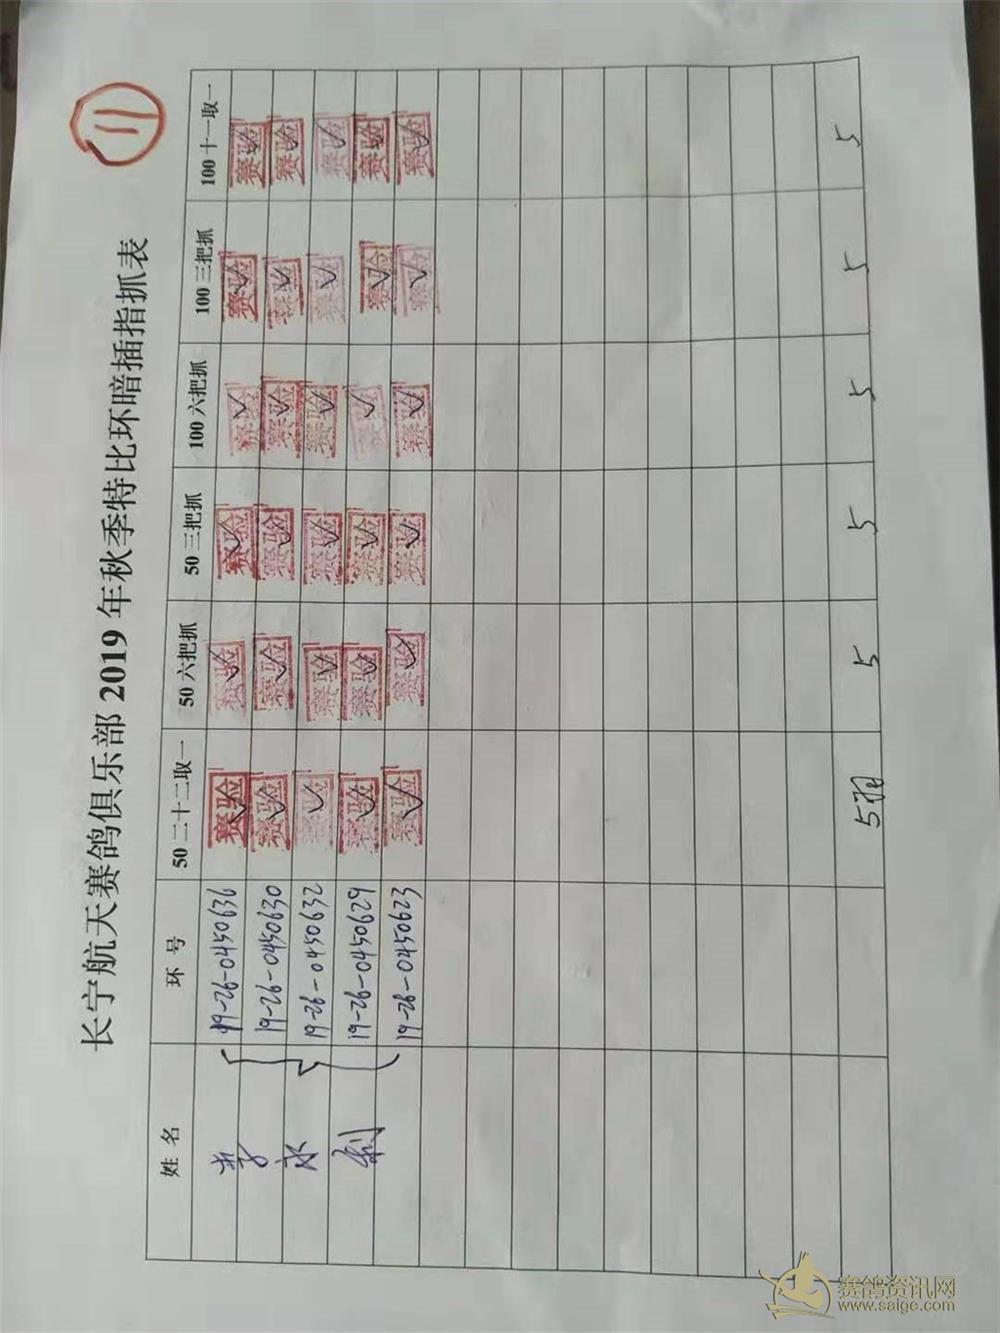 11
长宁航天赛鸽俱乐部 2019 年秋季特比环暗插指抓表
姓 名 环 号 50 二十二取一 50 六把抓 50 三把抓 100 六把抓 100 三把抓 100 十一取一
19-26-0450636 赛验 赛验 赛验 赛验 赛验 赛验
李 19-26-0450630 赛验 赛验 赛验 赛验 赛验 赛验
永 19-26-0450632 赛验 赛验 赛验 赛验 赛验 赛验
19-26-0450629 赛验 赛验 赛验 赛验 赛验 赛验
19-26-0450623 赛验 赛验 赛验 赛验 赛验 赛验
5羽 5 5 5 5 5
赛鸽资讯网
www.saige.com